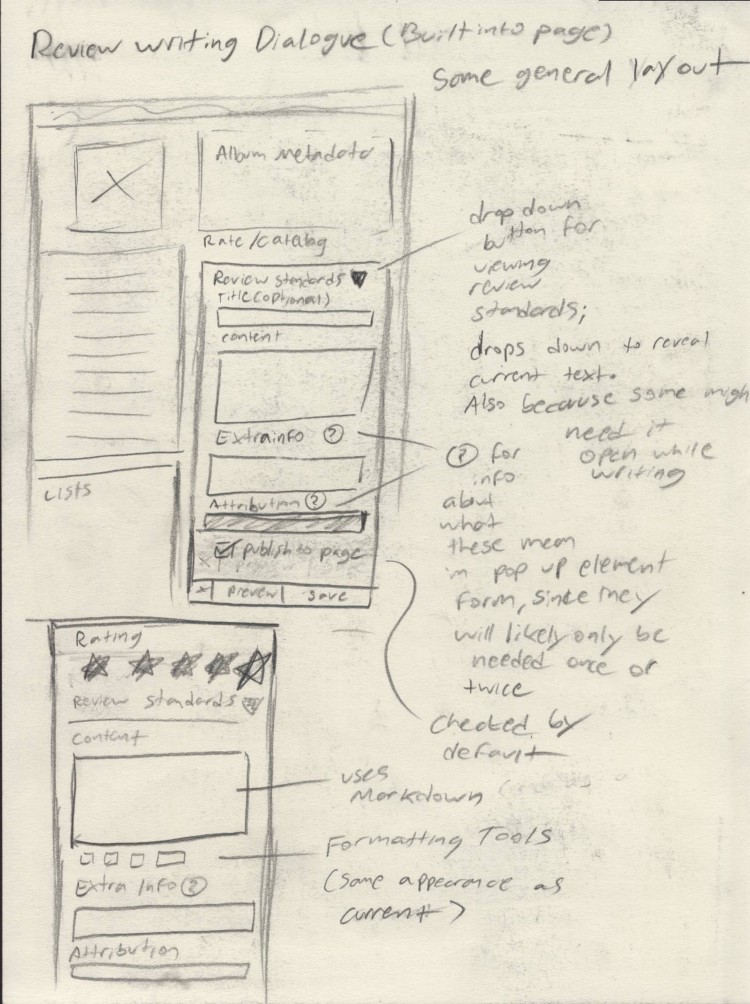 Review writing Dialogue (Built into page)
Some general layout
Album Metadata
Rate/Catalog
Review standards
Title (optional)
content
Extra info ?
Attribution ?
publish to page
x preview save
Lists
drop down
button for
viewing
review
standards;
drops down to reveal
current text.
Also because some might
need it
open while
writing
? for
info
about
what
these mean
in pop up element
form, since they
will likely only be
needed once or
twice
Checked by
default
Rating
Review standards
Content
Extra Info ?
Attribution
uses
Markdown
Formatting Tools
(same appearance as
current)